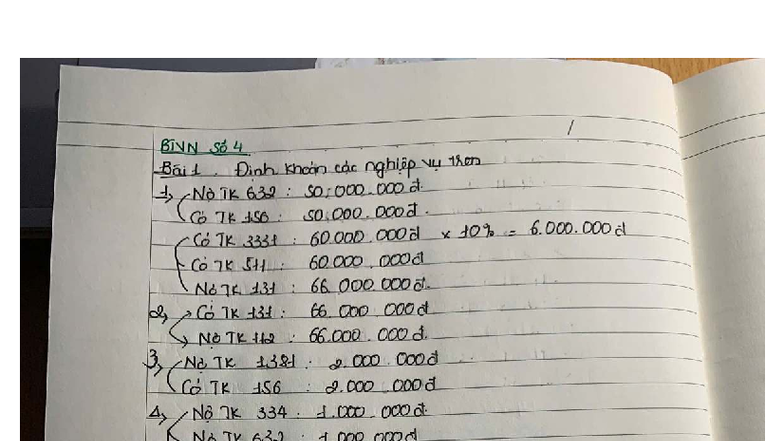 BTVN Số 4
Bài 1. Định khoản các nghiệp vụ trên
1, Nợ TK 632 : 50.000.000đ
Có TK 156 : 50.000.000đ.
Có TK 3331 : 60.000.000đ x 10% = 6.000.000đ
Có TK 511 : 60.000.000đ
Nợ TK 131 : 66.000.000đ.
2, Có TK 131 : 66.000.000đ
Nợ TK 112 : 66.000.000đ.
3, Nợ TK 1381 : 2.000.000đ
Có TK 156 : 2.000.000đ
4, Nợ TK 334 : 1.000.000đ.
Nợ TK 632 : 1.000.000đ